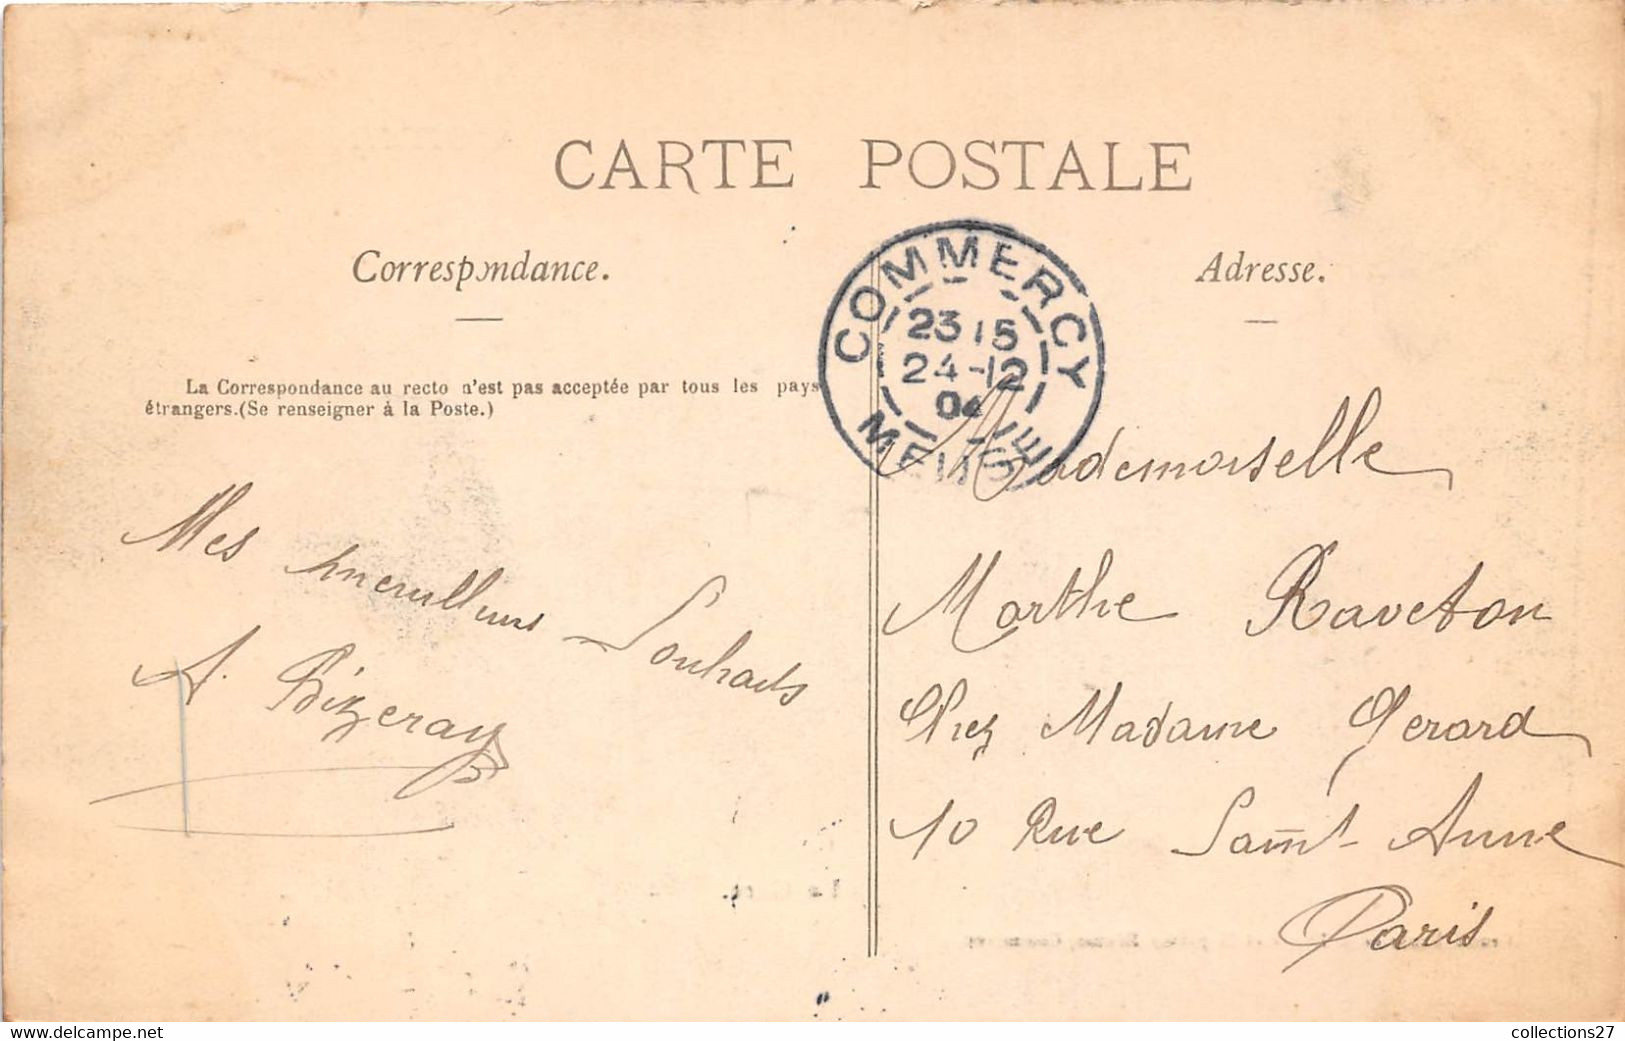 CARTE POSTALE
Correspondance.
Adresse.
La Correspondance au recto n'est pas acceptée par tous les pays
étrangers.(Se renseigner à la Poste.)
COMMERCY
23 15
24-12
04
MEUSE
Mes meilleurs Souhaits
A. Bizeray
Mademoiselle
Marthe Raveton
Chez Madame Gerard
10 Rue Saint-Anne
Paris
www.delcampe.net
collections27